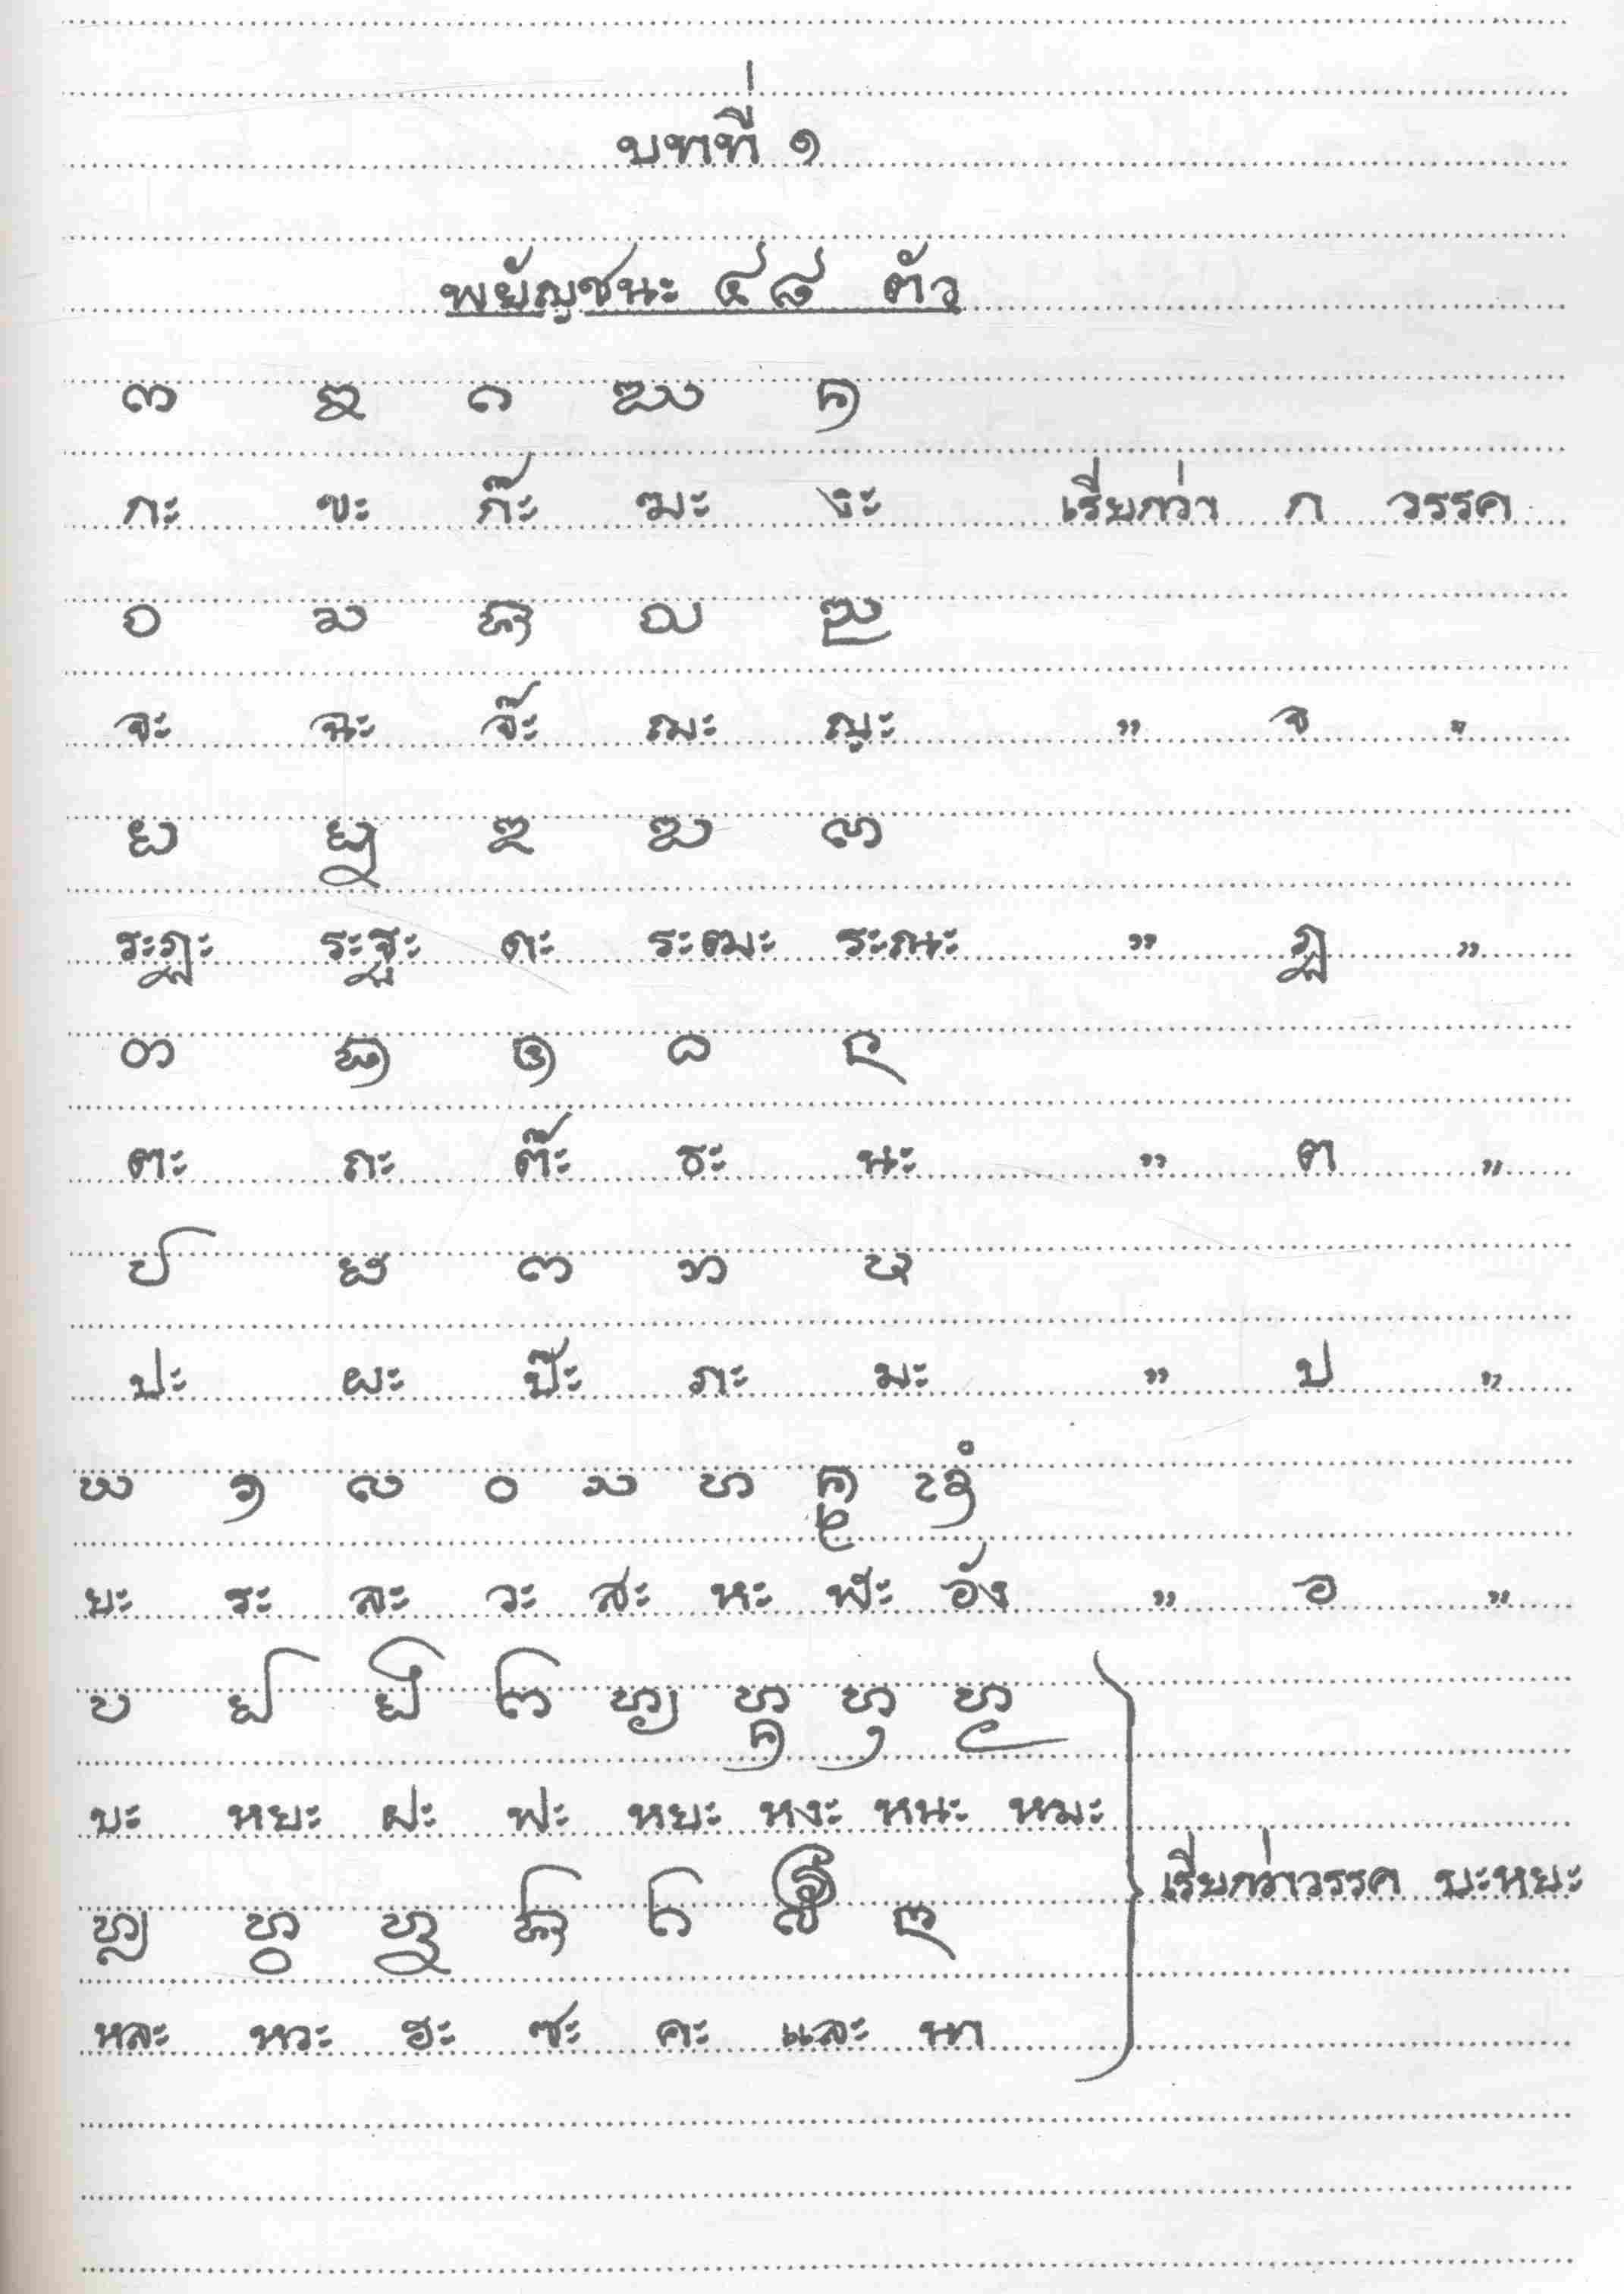 บทที่ ๑
พยัญชนะ ๔๘ ตัว
ᨠ ᨡ ᨣ ᨥ ᨦ
กะ ขะ ก๊ะ ฆะ งะ เรียกว่า ก วรรค
ᨧ ᨨ ᨩ ᨫ ᨬ
จะ ฉะ จ๊ะ ฌะ ญะ " จ "
ᨭ ᨮ ᨯ ᨰ ᨱ
ระฏะ ระฐะ ดะ ระฒะ ระณะ " ฏ "
ᨲ ᨳ ᨴ ᨵ ᨶ
ตะ ถะ ต๊ะ ธะ นะ " ต "
ᨸ ᨹ ᨻ ᨽ ᨾ
ปะ ผะ ป๊ะ ภะ มะ " ป "
ᨿ ᩁ ᩃ ᩅ ᩈ ᩉ ᩊ ᩋᩴ
ยะ ระ ละ วะ สะ หะ ฬะ อัง " อ "
ᨷ ᩀ ᨺ ᨼ ᩉ᩠ᨿ ᩉ᩠ᨦ ᩉ᩠ᨶ ᩉ᩠ᨾ
บะ หยะ ฝะ ฟะ หยะ หงะ หนะ หมะ
เรียกว่าวรรค บะหยะ
ᩉᩖ ᩉ᩠ᩅ ᩌ ᨪ ᨤ ᩓ ᨶᩣ
หละ หวะ ฮะ ซะ คะ และ นา